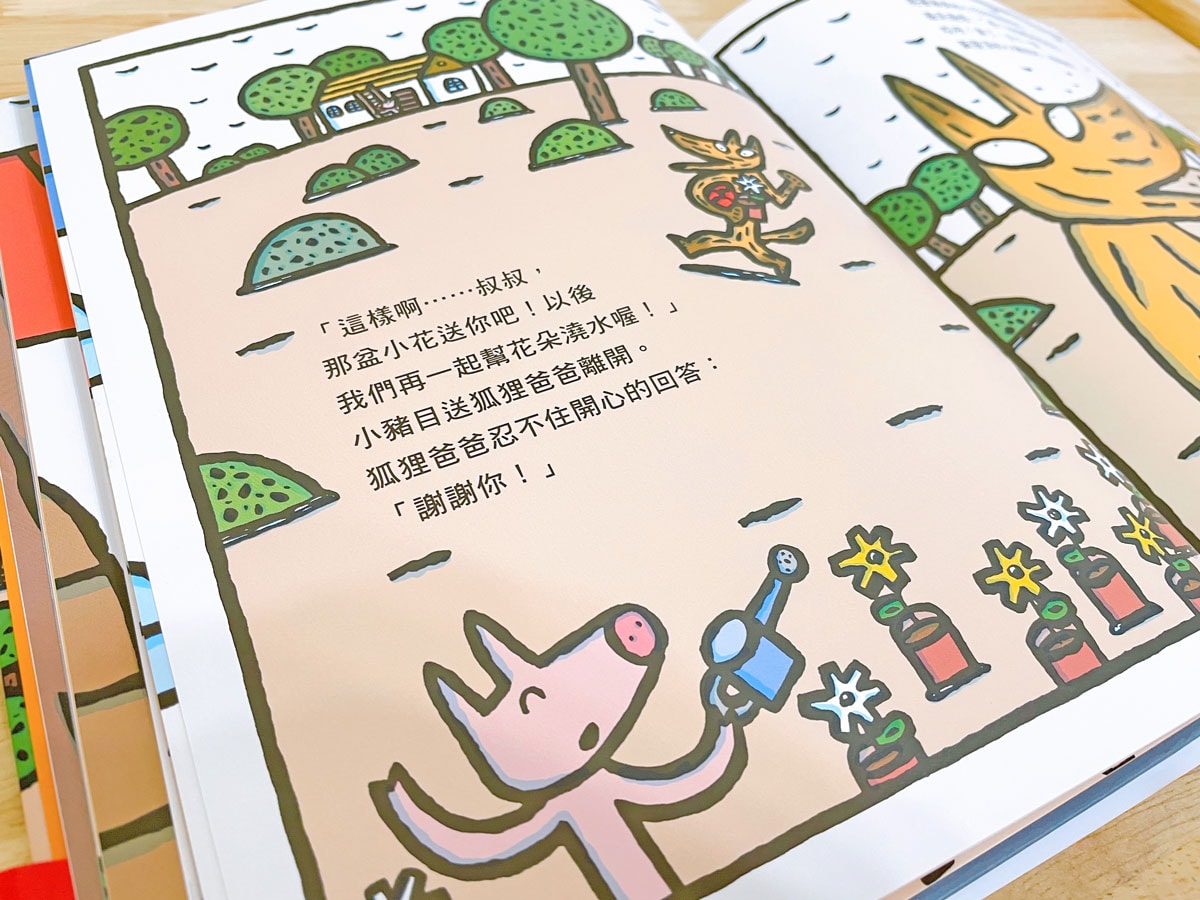 「這樣啊……叔叔，
那盆小花送你吧！以後
我們再一起幫花朵澆水喔！」
小豬目送狐狸爸爸離開。
狐狸爸爸忍不住開心的回答：
「謝謝你！」